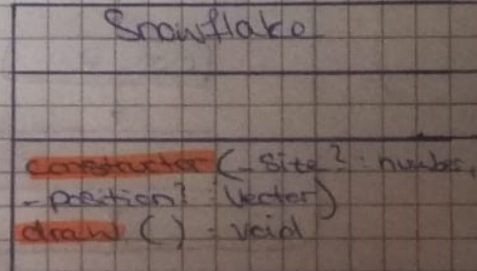 Snowflake
constructor (- size? : number,
- position? : Vector)
draw () : void